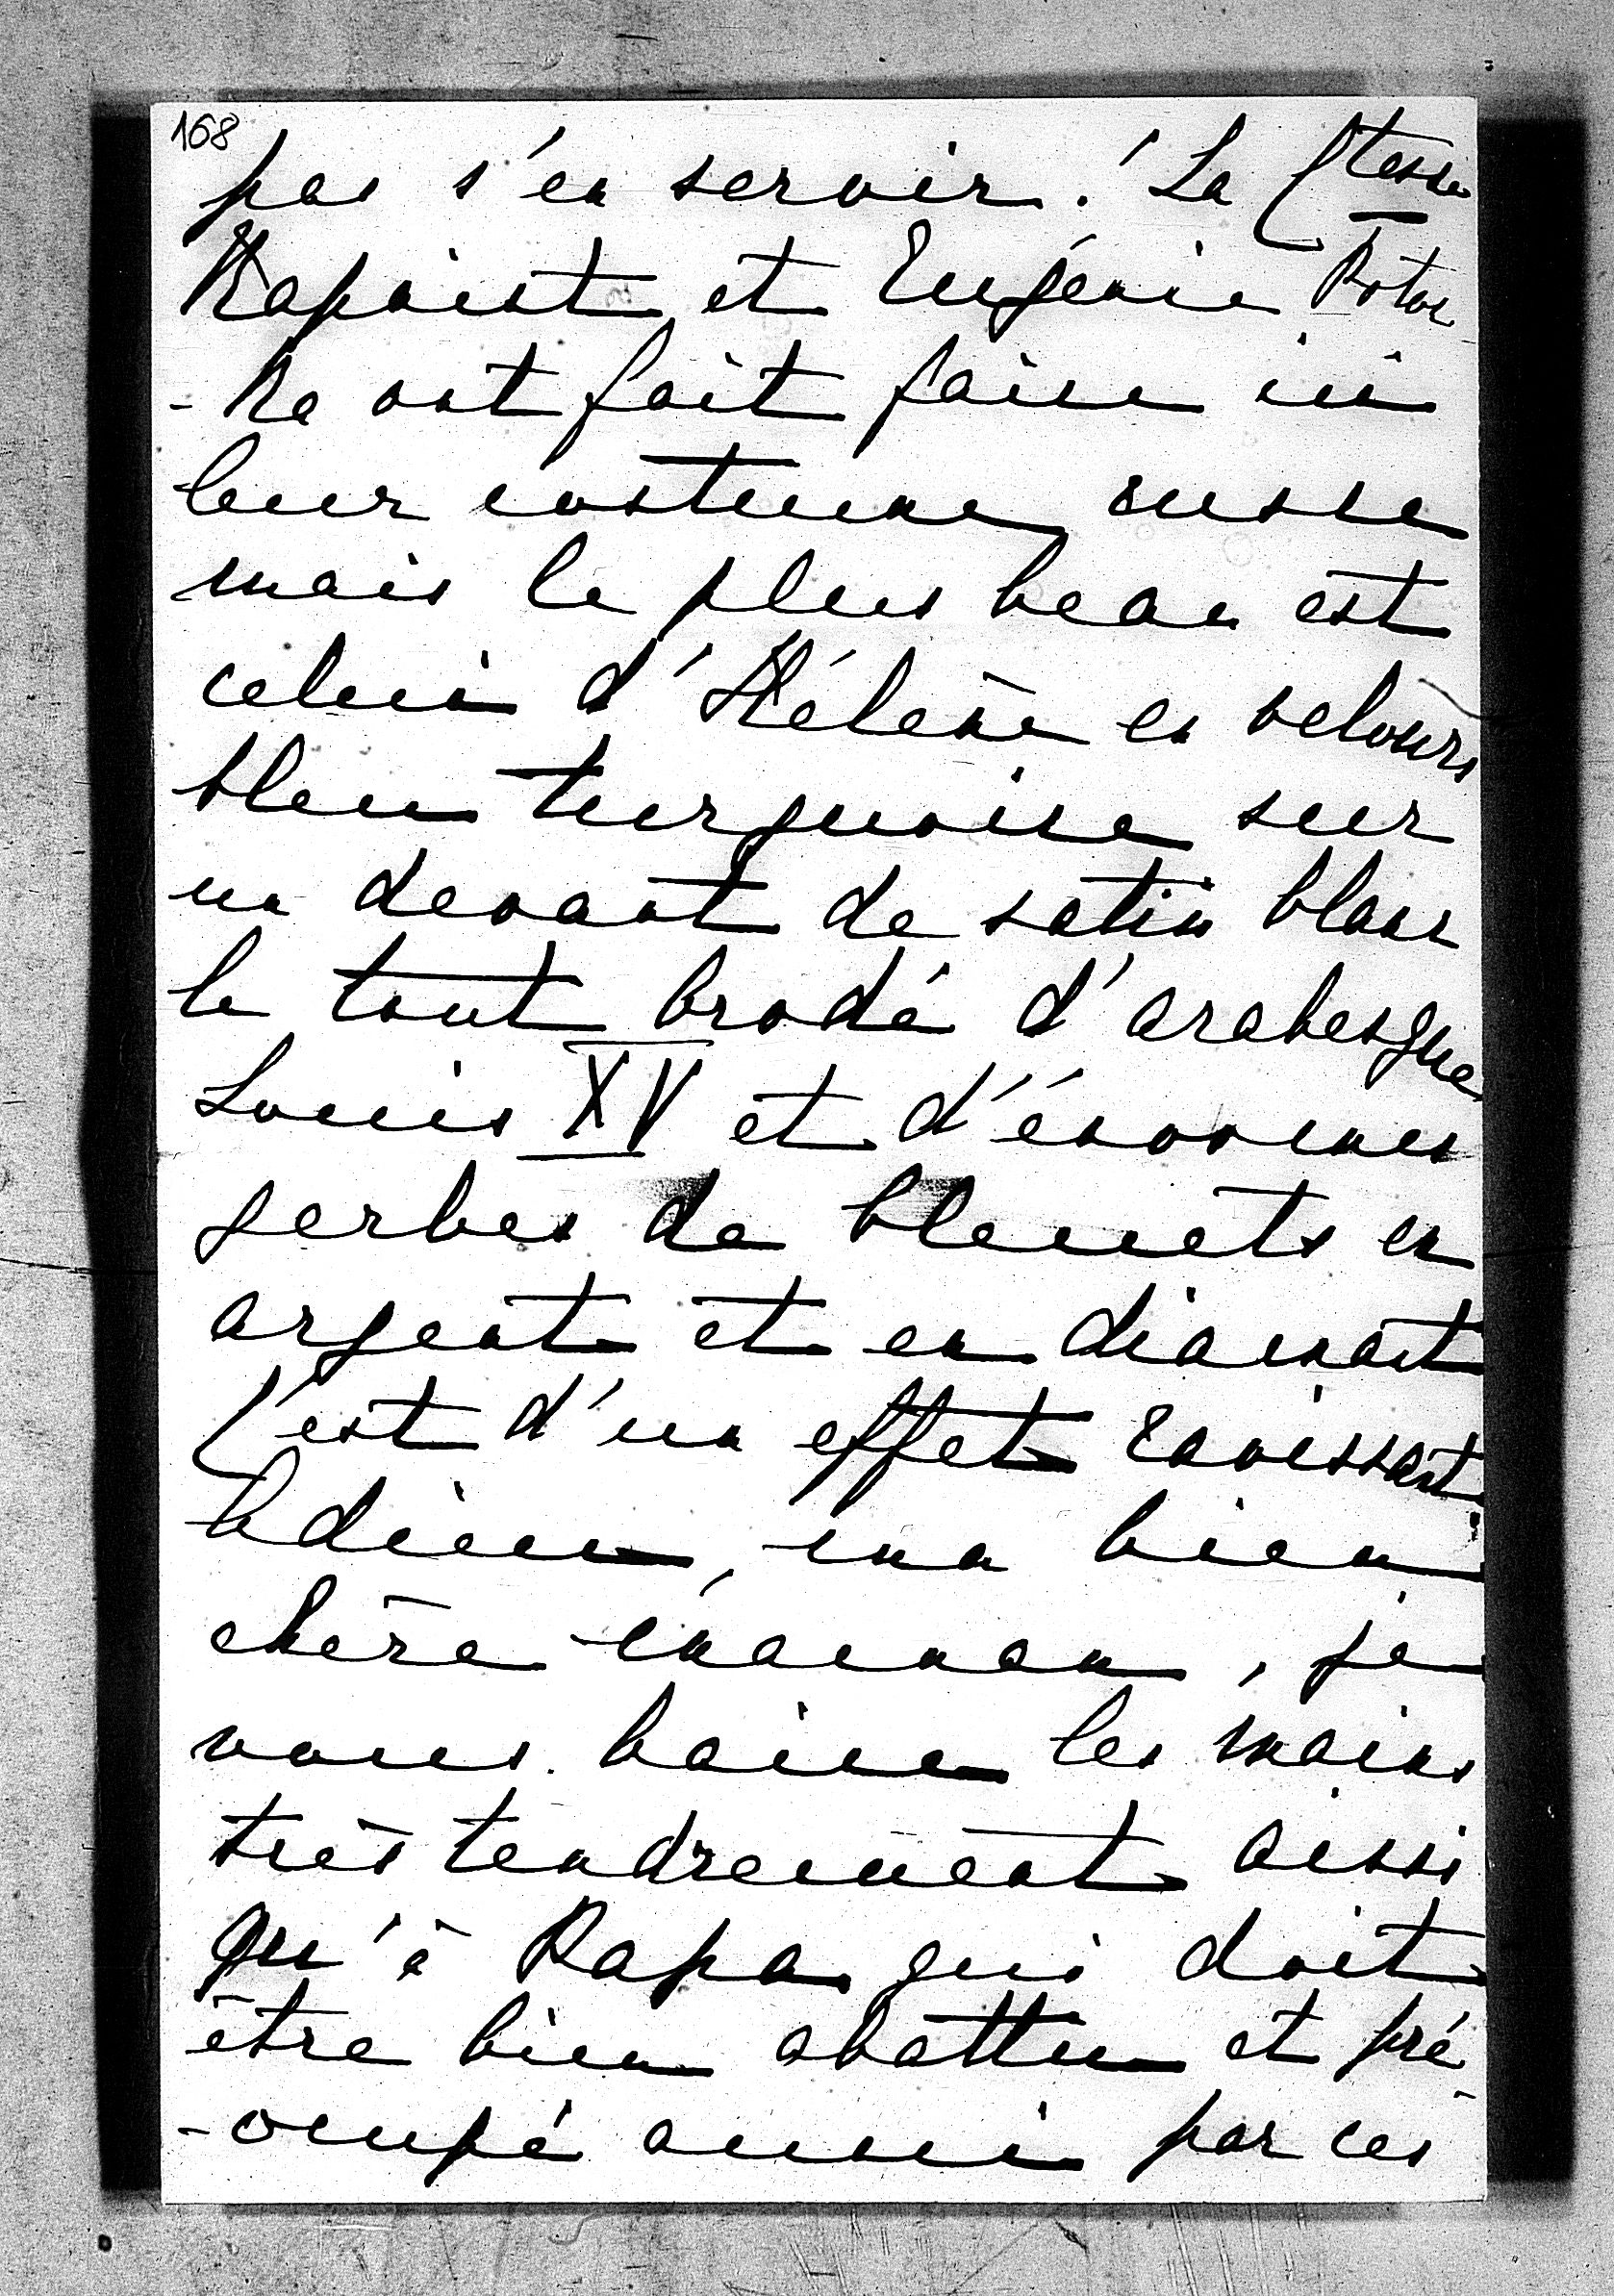 168
pas s'en servir. La Ctesse
Kapnist et Eugénie Poto
-ka ont fait faire ici
leur costume russe
mais le plus beau est
celui d'Hélène en velours
bleu turquoise sur
un devant de satin blanc
le tout brodé d'arabesques
Louis XV et d'énormes
gerbes de bleuets en
argent et en diamant
C'est d'un effet ravissant
Adieu, ma bien
chère maman, je
vous baise les mains
très tendrement aissi
qu'à Papa qui doit
être bien abattu et pré
-ocupé aussi par ces